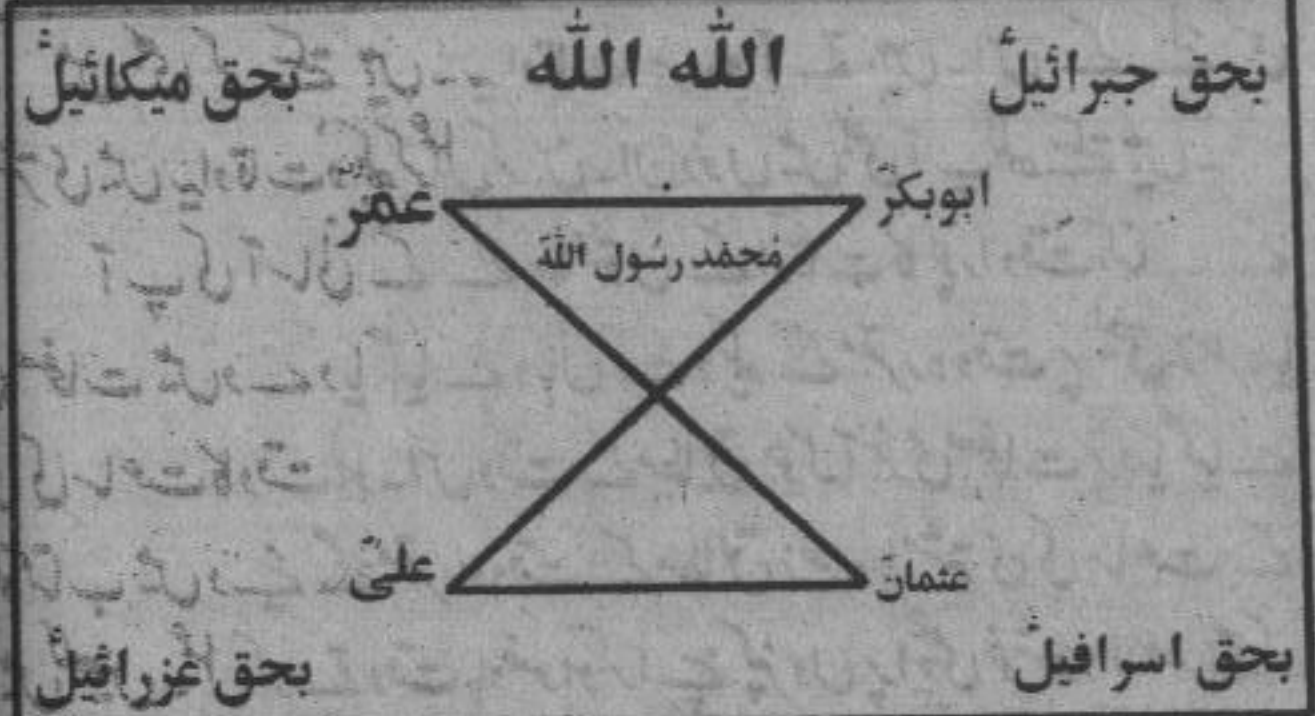 بحق جبرائیلؑ اللّٰہ اللّٰہ بحق میکائیلؑ
ابوبکرؓ عمرؓ
مُحمّد رسُول اللّٰہؐ
عثمانؓ علیؓ
بحق اسرافیلؑ بحق عزرائیلؑ